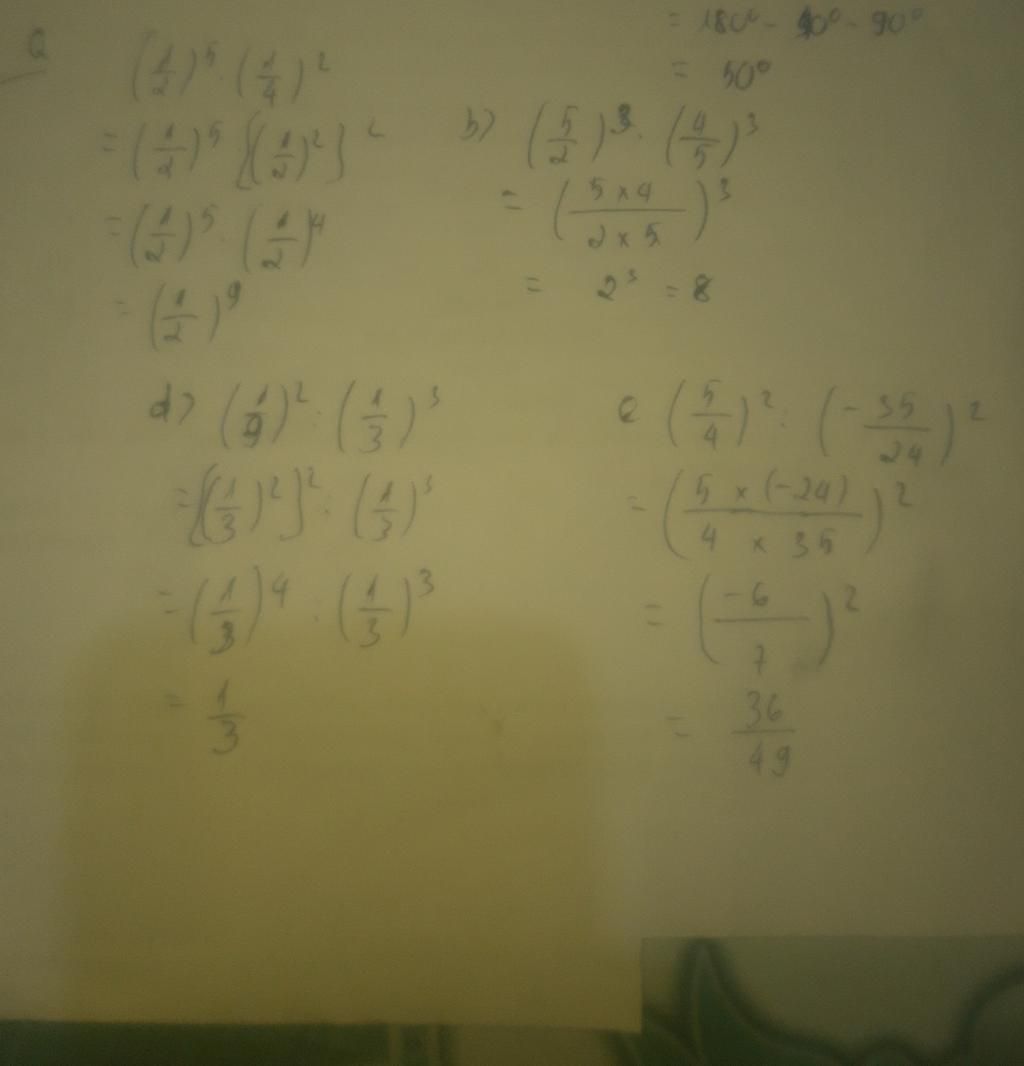 = 180° - 40° - 90°
= 50°
a (1/2)^5 · (1/4)^2
= (1/2)^5 [(1/2)^2]^2
= (1/2)^5 · (1/2)^4
= (1/2)^9
b) (5/2)^3 · (4/5)^3
= ((5 × 4)/(2 × 5))^3
= 2^3 = 8
d) (1/9)^2 : (1/3)^3
= [(1/3)^2]^2 : (1/3)^3
= (1/3)^4 : (1/3)^3
= 1/3
c (5/4)^2 : (-35/24)^2
= ((5 × (-24))/(4 × 35))^2
= (-6/7)^2
= 36/49